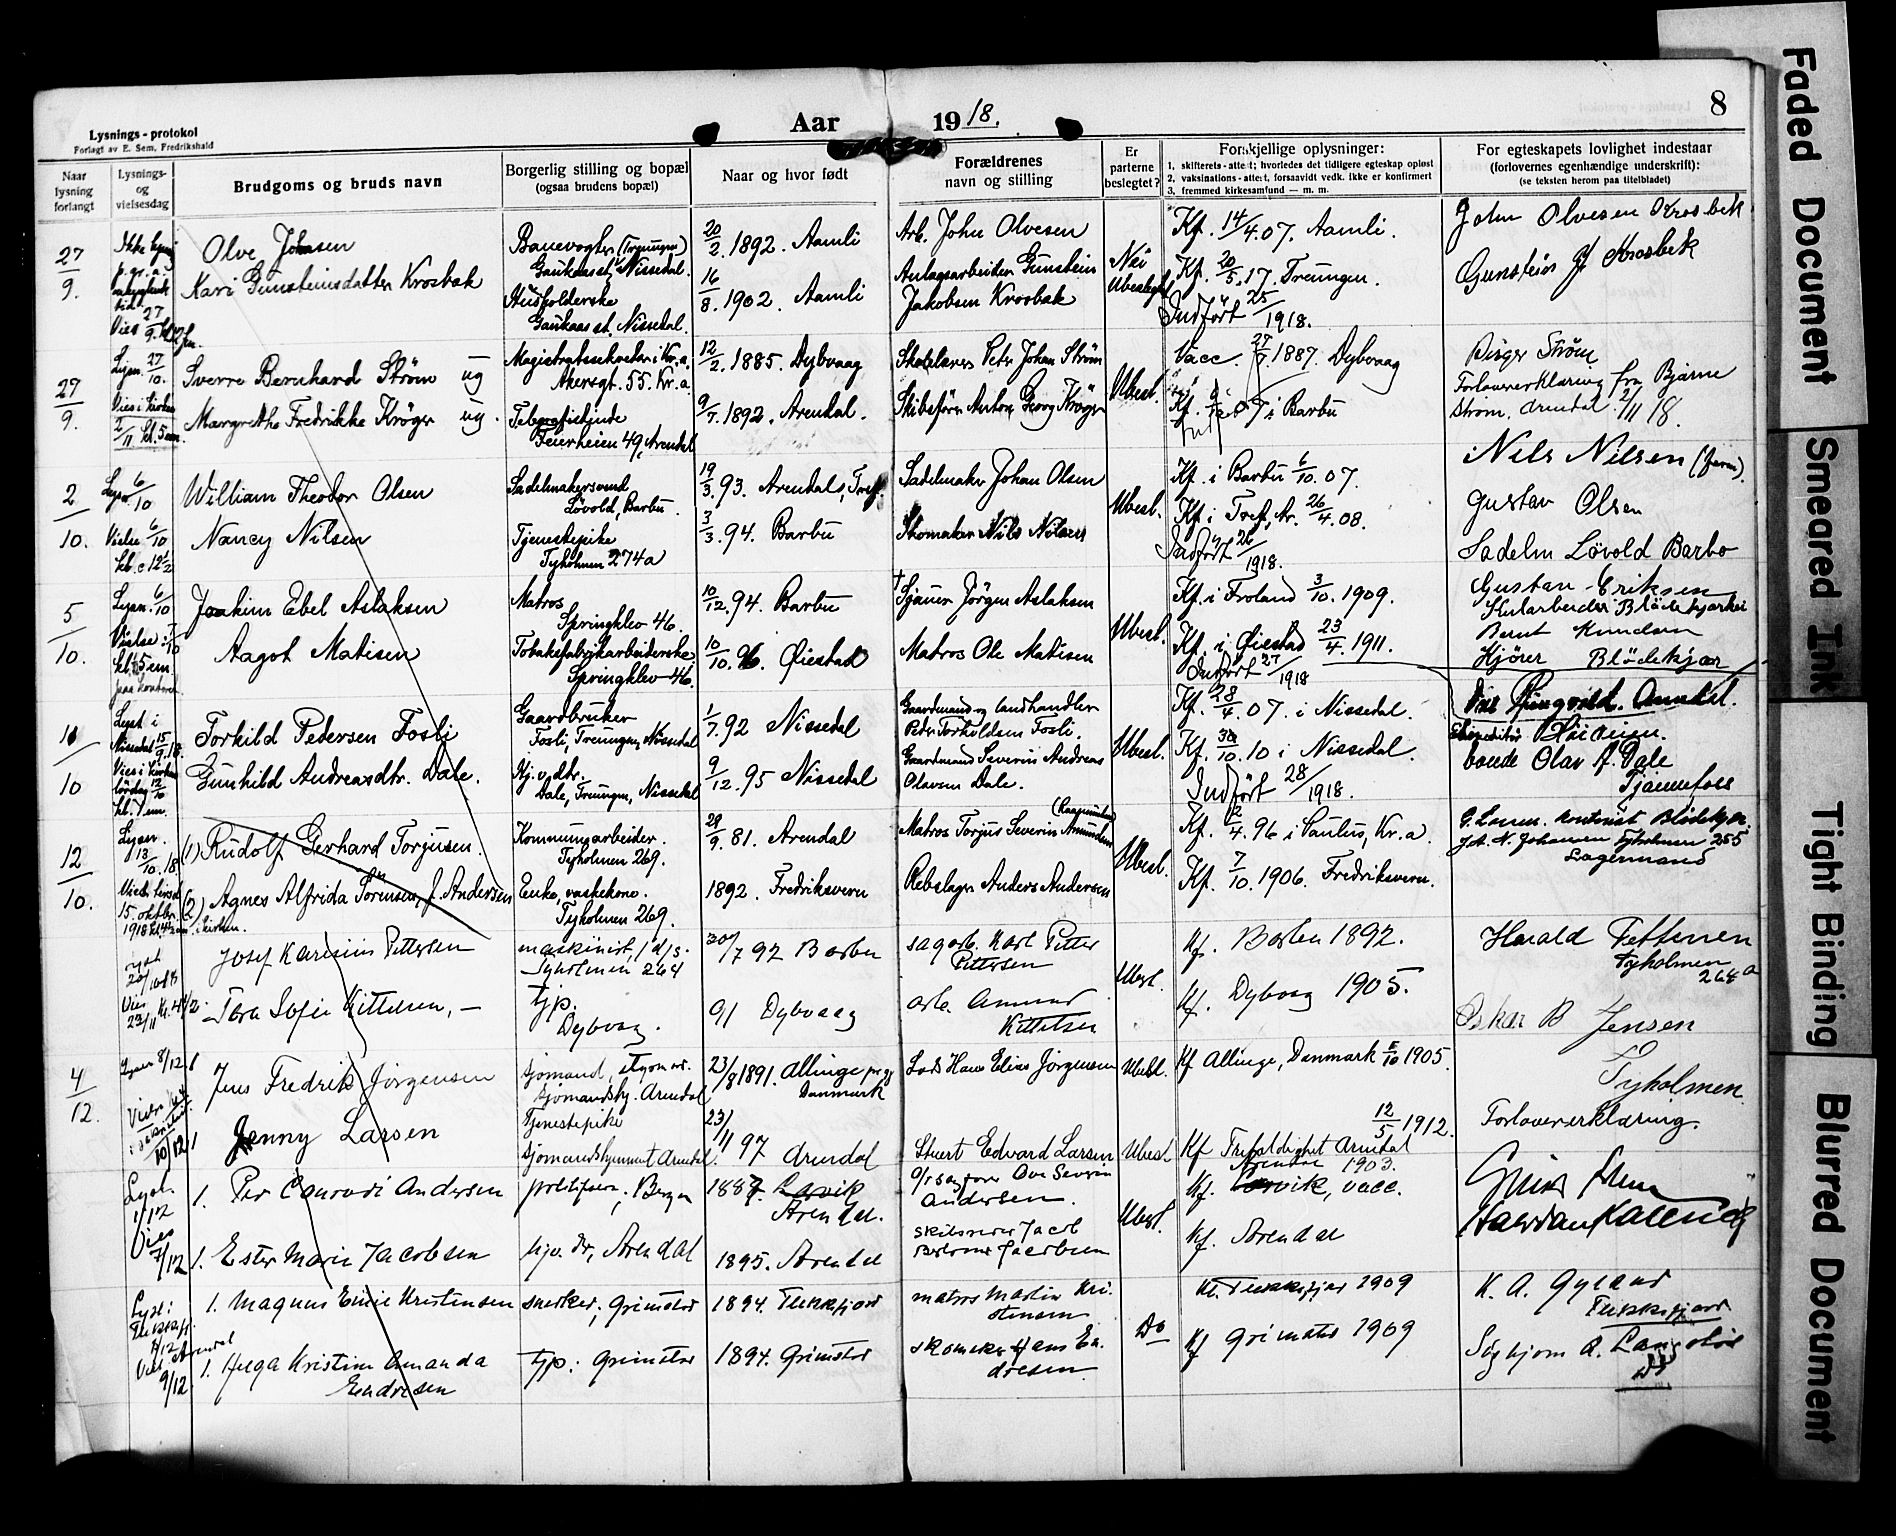 Lysnings-protokol
Forlagt av E. Sem, Fredrikshald
Aar 1918.
8
Naar lysning forlangt
Lysnings- og vielsesdag
Brudgoms og bruds navn
Borgerlig stilling og bopæl
(ogsaa brudens bopæl)
Naar og hvor født
Forældrenes
navn og stilling
Er parterne beslegtet?
Forskjellige oplysninger:
1. skifterets-attest; hvorledes det tidligere egteskap opløst
2. vaksinations-attest, forsaavidt vedk. ikke er konfirmert
3. fremmed kirkesamfund — m. m.
For egteskapets lovlighet indestaar
(forlovernes egenhændige underskrift):
(se teksten herom paa titelbladet)
27/9.
Olve Johnsen
Banevogter (Treungen)
Gaukaas st., Nissedal.
20/2. 1892. Aamli
Arb. John Olvesen
Kf. 14/4.07. Aamli.
John Olvesen Krosbek
Kari Gunsteinsdatter Krosbak
Husholderske
Gaukaas st. Nissedal.
16/8. 1902. Aamli
Anlægsarbeider Gunstein
Jakobsen Krosbak
Nei
Ubeslegtet
Kf. 20/5.17. Treungen.
Indført 25/1918.
Gunstein J Krosbek
Vies 27/9.
27/9.
Lysn. 27/10.
Sverre Bernhard Strøm ug
Magistratssekretær i Kr.a.
Akersgt. 55. Kr.a
12/2. 1885. Dybvaag
Peter Johan Strøm
Ubesl.
Vacc. 27/7. 1887. Dybvaag
Birger Strøm
Vies i kirken
2/11 kl. 5 em.
Margrethe Fredrikke Krøger ug.
Telegrafistinde
Feierheien 49, Arendal
9/7. 1892. Arendal.
Skibsfører Anton Georg Krøger
Kf. i Barbu
Forlovererklæring fra Bjarne
Strøm, Arendal 2/11 18.
2/10.
Lysn 6/10
William Theodor Olsen
Sadelmakersvend
Løvold, Barbu.
19/3. 93. Arendals Tref.
Sadelmaker Johan Olsen
Ubesl.
Kf. i Barbu 6/10. 07.
Nils Nilsen
Gustav Olsen
Vielse 6/10
kl. c 12 1/2
Nancy Nilsen
Tjenestepike
Tyholmen 274a
3/3. 94. Barbu
Skomaker Nils Nilsen
Kf. i Tref. Ar. 26/4.08.
Indført 26/1918.
Sadelm Løvold Barbo
5/10.
Lysn. 6/10
Joakim Ebel Aslaksen
Matros
Springklev 46.
10/12. 94. Barbu
† Sjauer Jörgen Aslaksen
Ubesl.
Kf. i Froland 3/10. 1909.
Gustav Eriksen
Blødekjær
kl. 5 em
paa kontoret
Aagot Matisen
Tobaksfabrikarbeiderske
Springklev 46.
10/10. 96. Øiestad
Matros Ole Matisen
Kf. i Øiestad 23/4. 1911.
Indført 27/1918
Bernt Knudsen
Kjører Blødekjær
11/10
Lyst i
Nissedal 15/9 18.
Torkild Pedersen Fosli
Gaardbruker
Fosli, Treungen, Nissedal
1/7 92 Nissedal
Gaardmand og landhandler
Peter Torkildsen Fosli.
Ubesl.
Kf. 28/4. 07. i Nissedal.
Ringvold. Arendal.
Vies i kirken
lørdag 12/10
kl. 7 em.
Gunhild Andreasdtr. Dale.
Hj. v. dtr.
Dale, Treungen, Nissedal
9/12. 95 Nissedal
Gaardmand Severin Andreas
Olavsen Dale.
Kf. 30/10. 10 i Nissedal.
Indført 28/1918.
bonde Olav A. Dale
Tjønnefoss
12/10.
Lysn.
13/10. 18
(1) Rudolf Gerhard Torjusen.
Kommunearbeider.
Tyholmen 269.
29/9. 81. Arendal
Matros Torjus Severin Amundsen
Ubesl.
Kf. 12/4. 96 i Paulus, Kr.a.
Joh. N. Johansen Tyholmen 255
Lagermand
15. oktbr.
1918
i kirken.
(2) Agnes Alfrida Sørensen, f. Andersen
Enke, vaskekone.
Tyholmen 269.
1892. Fredriksvern
Rebslager Anders Andersen
Kf. 7/10. 1906. Fredriksvern.
Lyst
20/10
Josef Karinius Pettersen
maskinist, d/s.
Tyholmen 264
30/7 92 Barbu
sagarb. Karl Petter
Pettersen
Ubesl.
Kf. Barbu 1892.
Harald Pettersen
Tyholmen
264 a
Vies
Tora Sofie Kittelsen, —
tjp.
Dybvaag.
91 Dybvaag
arb.
Kittelsen
Kf. Dybvaag 1905.
Oskar B Jensen
Tyholmen
4/12.
Lysn 8/12 18
Jens Fredrik Jørgensen
sjømand, styrmd.
sjømandshj. Arendal
23/8 1891. Allinge
Danmark
Lods Hans Elias Jörgensen
Ubesl.
Kf Allinge, Danmark 1905.
10/12
Jenny Larsen
Tjenestepike
sjømandshjemmet Arendal.
23/11 97 Arendal
Stuert Edvard Larsen
Ubesl.
12/5 1912.
Kf Trefoldighet Arendal
Forlovererklæring.
Lyst.
1/12
1. Per Conradi Andersen
Bergen
1887. Larvik
Arendal.
Ove Severin
Andersen.
Ubesl.
Arendal 1903.
Kf. Larvik, vacc.
Vies
7/12
1. Ester Marie Jacobsen
hjv. dr, Arendal
1895. Arendal
skibsreder Jacob
Jacobsen
Kf. Arendal
Lyst:
Flekkefj.
1. Magnus Emil Kristensen
snekker, Grimstad
1894. Flekkefjord
matros Martin Kri-
stensen
Do
Kf. Flekkefjord 1909
K. A. Gyland
Flekkefjord
Vies Arendal
9/12
1. Helga Kristine Amanda
Endresen
tjp. Grimstad
1894. Grimstad
skomaker Hans En-
dresen.
Kf Grimstad 1909
Faded Document
Smeared Ink
Tight Binding
Blurred Document